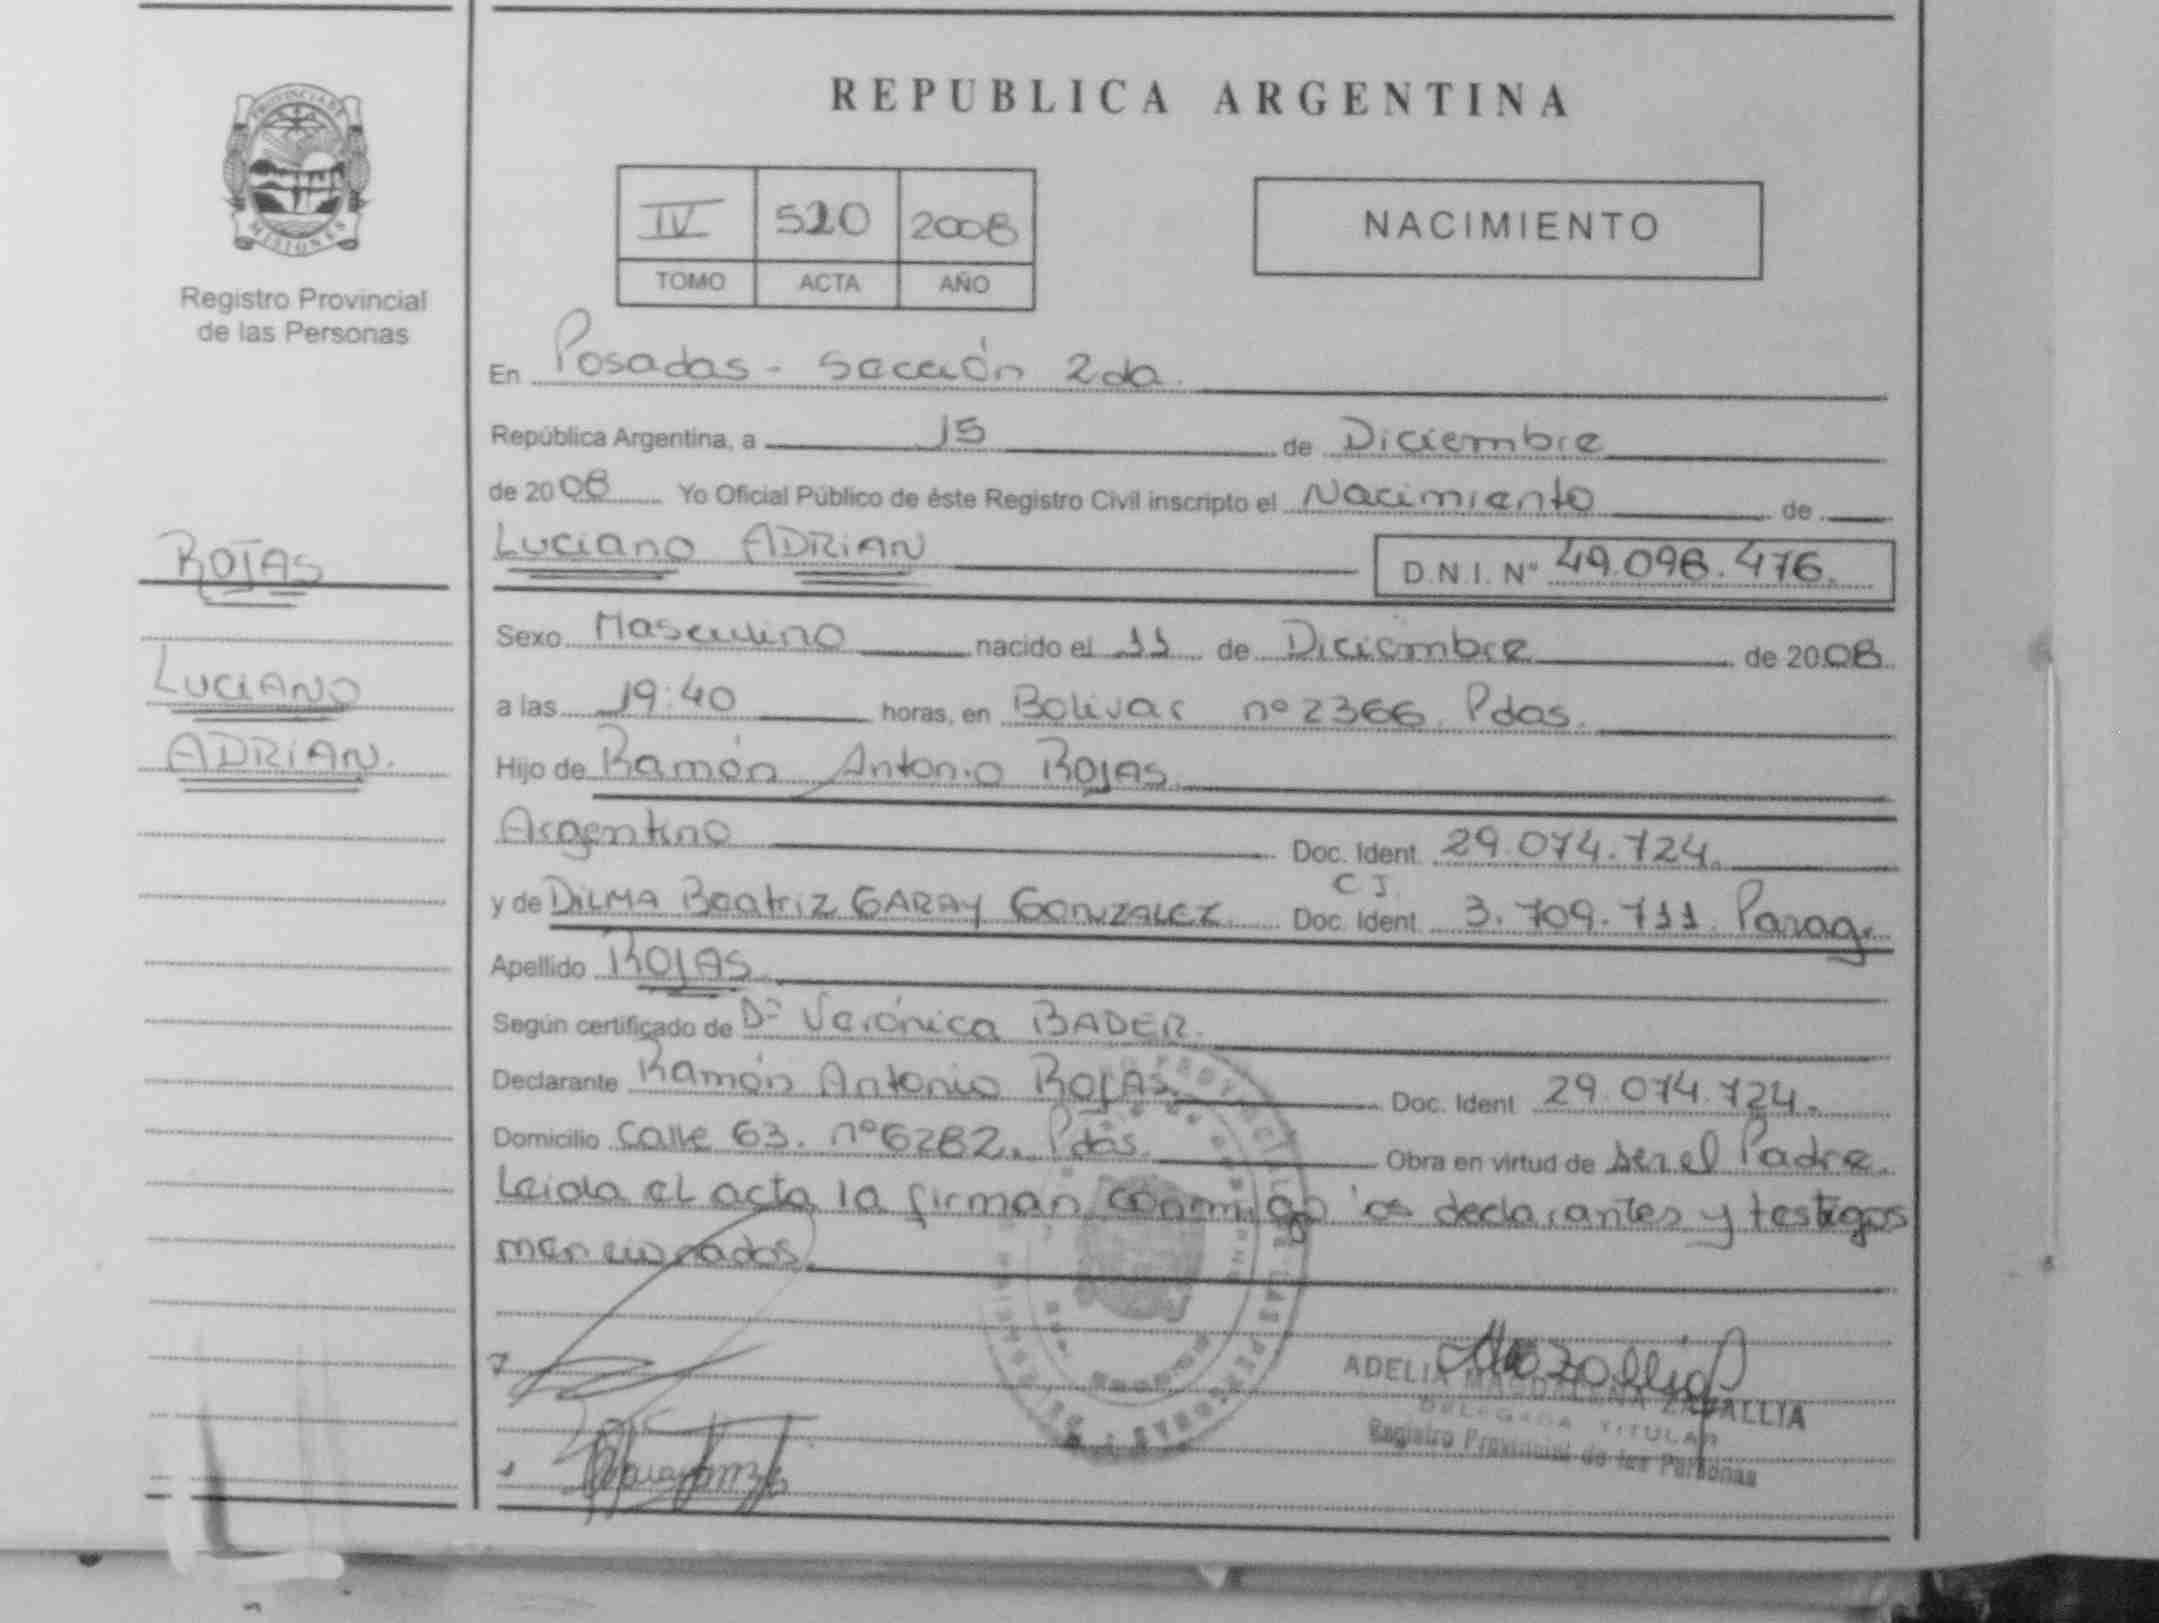 PROVINCIA DE
MISIONES
Registro Provincial
de las Personas
ROJAS
LUCIANO
ADRIAN.
REPUBLICA ARGENTINA
IV 520 2008
TOMO ACTA AÑO
NACIMIENTO
En Posadas - Sección 2da.
República Argentina, a 15 de Diciembre
de 2008 Yo Oficial Público de éste Registro Civil inscripto el Nacimiento de
Luciano ADRIAN D.N.I. Nº 49.098.476.
Sexo Masculino nacido el 11 de Diciembre de 2008
a las 19:40 horas, en Bolivar nº 2366 Pdas.
Hijo de Ramón Antonio Rojas
Argentino Doc. Ident. 29.074.724.
C I.
y de DILMA Beatriz GARAY GONZALEZ Doc. Ident. 3.709.711 Parag.
Apellido ROJAS
Según certificado de Dª Verónica BADER.
Declarante Ramón Antonio ROJAS Doc. Ident 29.074.724.
Domicilio Calle 63. nº 6282. Pdas. Obra en virtud de ser el Padre.
Leida el acta la firman conmigo los declarantes y testigos
mencionados
ADELIA MAGDALENA ZAFALLIA
DELEGADA TITULAR
Registro Provincial de las Personas